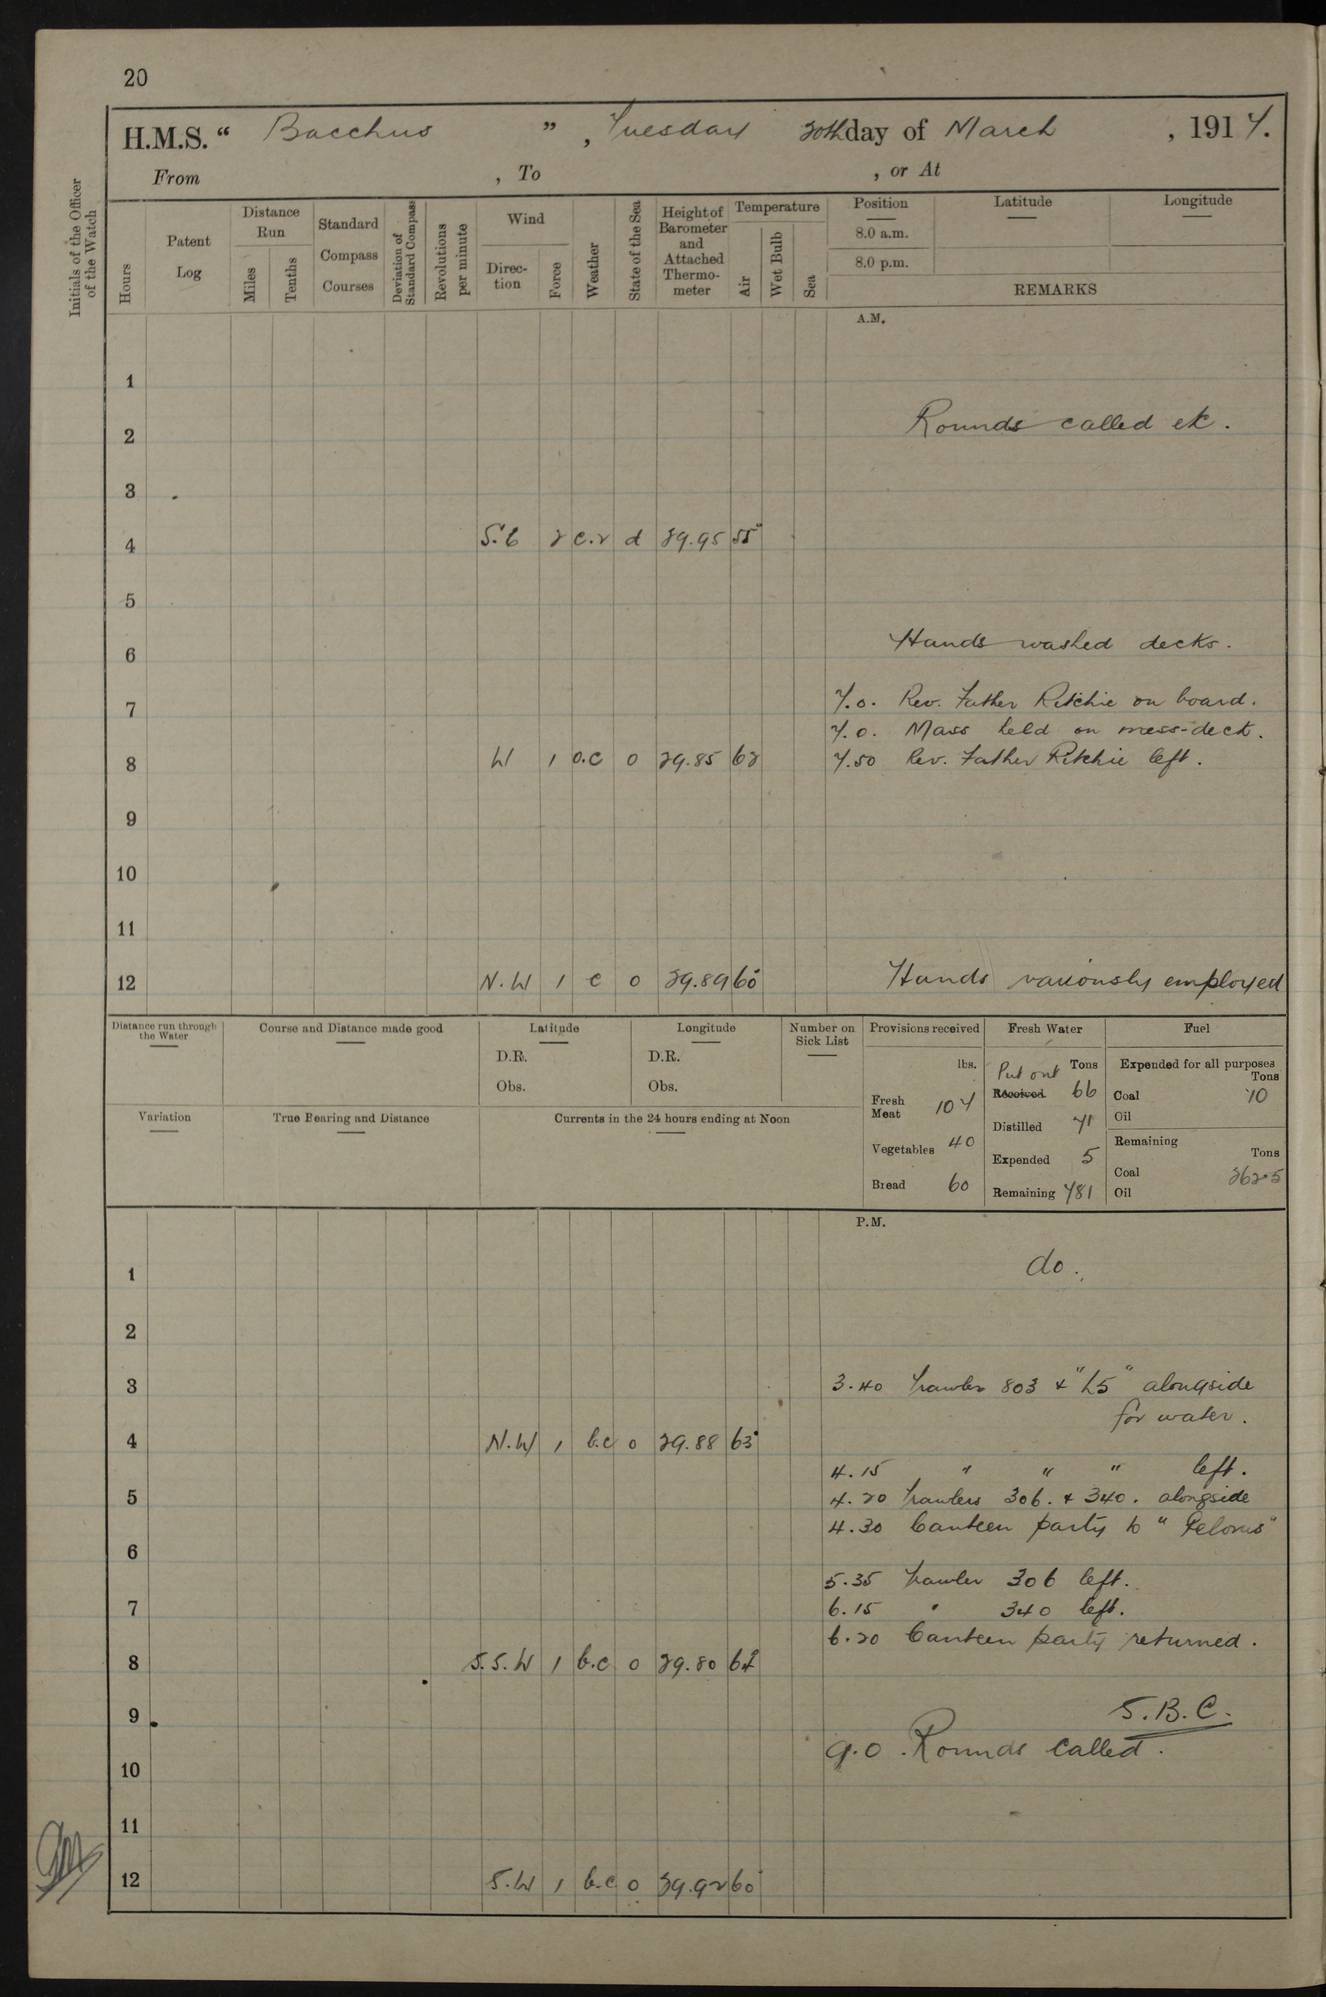 20
H.M.S. “ Bacchus ” , Tuesday 20th day of March , 1917.
From , To , or At
Initials of the Officer of the Watch
Hours
Patent Log
Distance Run
Miles
Tenths
Standard Compass Courses
Deviation of Standard Compass
Revolutions per minute
Wind
Direc-tion
Force
Weather
State of the Sea
Height of Barometer and Attached Thermo-meter
Temperature
Air
Wet Bulb
Sea
Position
8.0 a.m.
8.0 p.m.
Latitude
Longitude
REMARKS
A.M.
1
2 Rounds called etc.
3
4 S.E 2 c.r d 29.95 55°
5
6 Hands washed decks.
7 7.0. Rev. Father Ritchie on board.
7.0. Mass held on mess-deck.
8 W 1 o.c 0 29.85 62 7.50 Rev. Father Ritchie left.
9
10
11
12 N.W 1 c 0 29.89 60° Hands variously employed
Distance run through the Water
Course and Distance made good
Latitude
D.R.
Obs.
Longitude
D.R.
Obs.
Number on Sick List
Variation
True Bearing and Distance
Currents in the 24 hours ending at Noon
Provisions received
lbs.
Fresh Meat 107
Vegetables 40
Bread 60
Fresh Water
Put out Tons
Received 66
Distilled 71
Expended 5
Remaining 781
Fuel
Expended for all purposes
Tons
Coal 10
Oil
Remaining
Tons
Coal 262.5
Oil
P.M.
1 do.
2
3 3.40 Trawler 803 & "L5" alongside
for water.
4 N.W 1 b.c 0 29.88 63°
4.15 " " " left.
5 4.20 Trawlers 306. & 340. alongside
4.30 Canteen party to "Pelorus"
6
5.35 Trawler 306 left.
7 6.15 " 340 left.
6.20 Canteen party returned.
8 S.S.W 1 b.c 0 29.80 62
9 S.B.C.
9.0. Rounds called.
10
11
12 S.W 1 b.c 0 29.92 60°